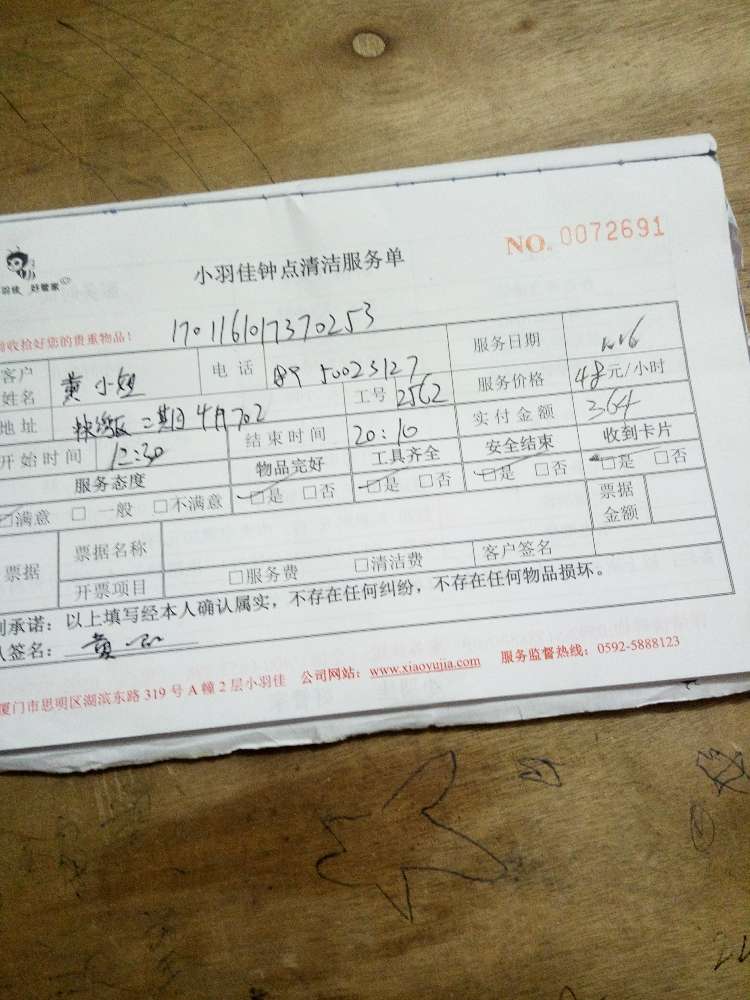 NO. 0072691
小羽佳钟点清洁服务单
好管家
收拾好您的贵重物品!
1701161017370253
客户姓名 黄小姐 电话 189 50023127 服务日期
工号 2562 服务价格 48元/小时
地址 二期 702 实付金额 364
开始时间 12:30 结束时间 20:10
服务态度 物品完好 工具齐全 安全结束 收到卡片
□满意 □一般 □不满意 □是 □否 □是 □否 □是 □否 □是 □否
票据 票据名称 票据金额
开票项目 □服务费 □清洁费 客户签名
承诺:以上填写经本人确认属实,不存在任何纠纷,不存在任何物品损坏。
签名: 黄
厦门市思明区湖滨东路319号A幢2层小羽佳 公司网站:www.xiaoyujia.com 服务监督热线:0592-5888123